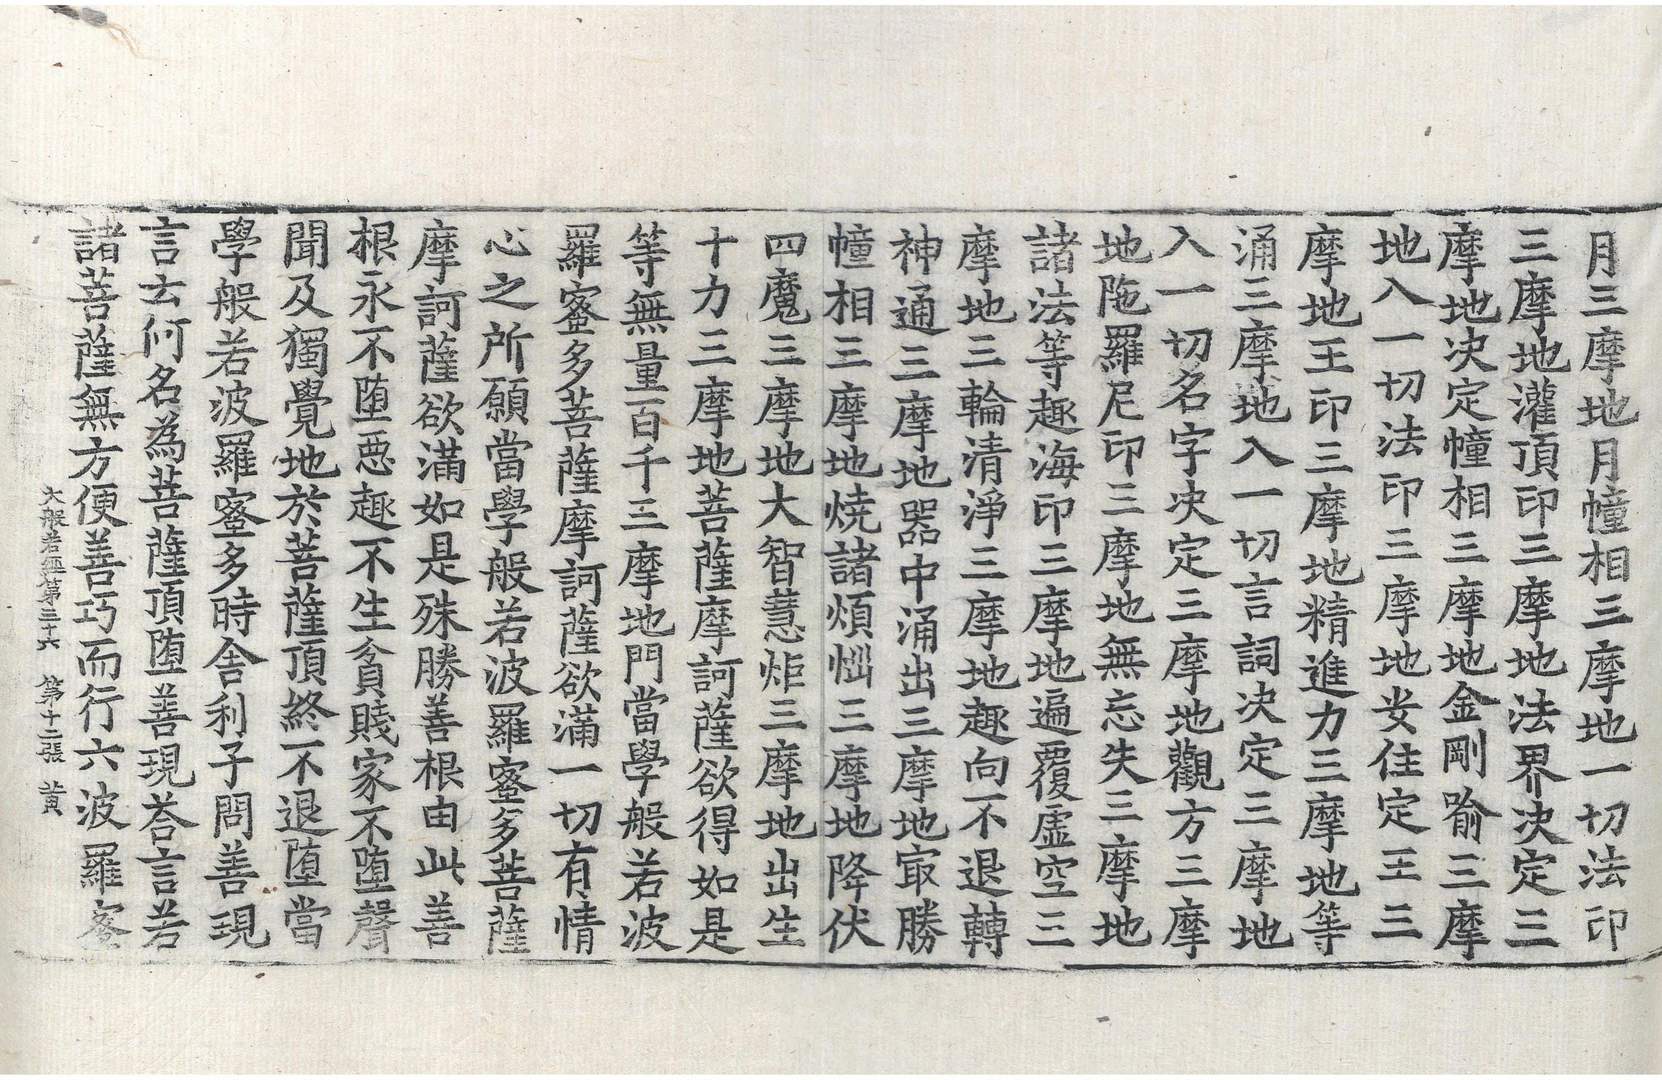 月三摩地月幢相三摩地一切法印
三摩地灌頂印三摩地法界决定三
摩地决定幢相三摩地金剛喻三摩
地入一切法印三摩地安住定王三
摩地王印三摩地精進力三摩地等
涌三摩地入一切言詞决定三摩地
入一切名字决定三摩地觀方三摩
地陁羅尼印三摩地無忘失三摩地
諸法等趣海印三摩地遍覆虛空三
摩地三輪清淨三摩地趣向不退轉
神通三摩地器中涌出三摩地㝡勝
幢相三摩地燒諸煩惱三摩地降伏
四魔三摩地大智慧炬三摩地出生
十力三摩地菩薩摩訶薩欲得如是
等無量百千三摩地門當學般若波
羅蜜多菩薩摩訶薩欲滿一切有情
心之所願當學般若波羅蜜多菩薩
摩訶薩欲滿如是殊勝善根由此善
根永不堕惡趣不生貧賤家不堕聲
聞及獨覺地於菩薩頂終不退堕當
學般若波羅蜜多時舍利子問善現
言云何名為菩薩頂堕善現荅言若
諸菩薩無方便善巧而行六波羅蜜
大般若經第三十六 第十二張 黃